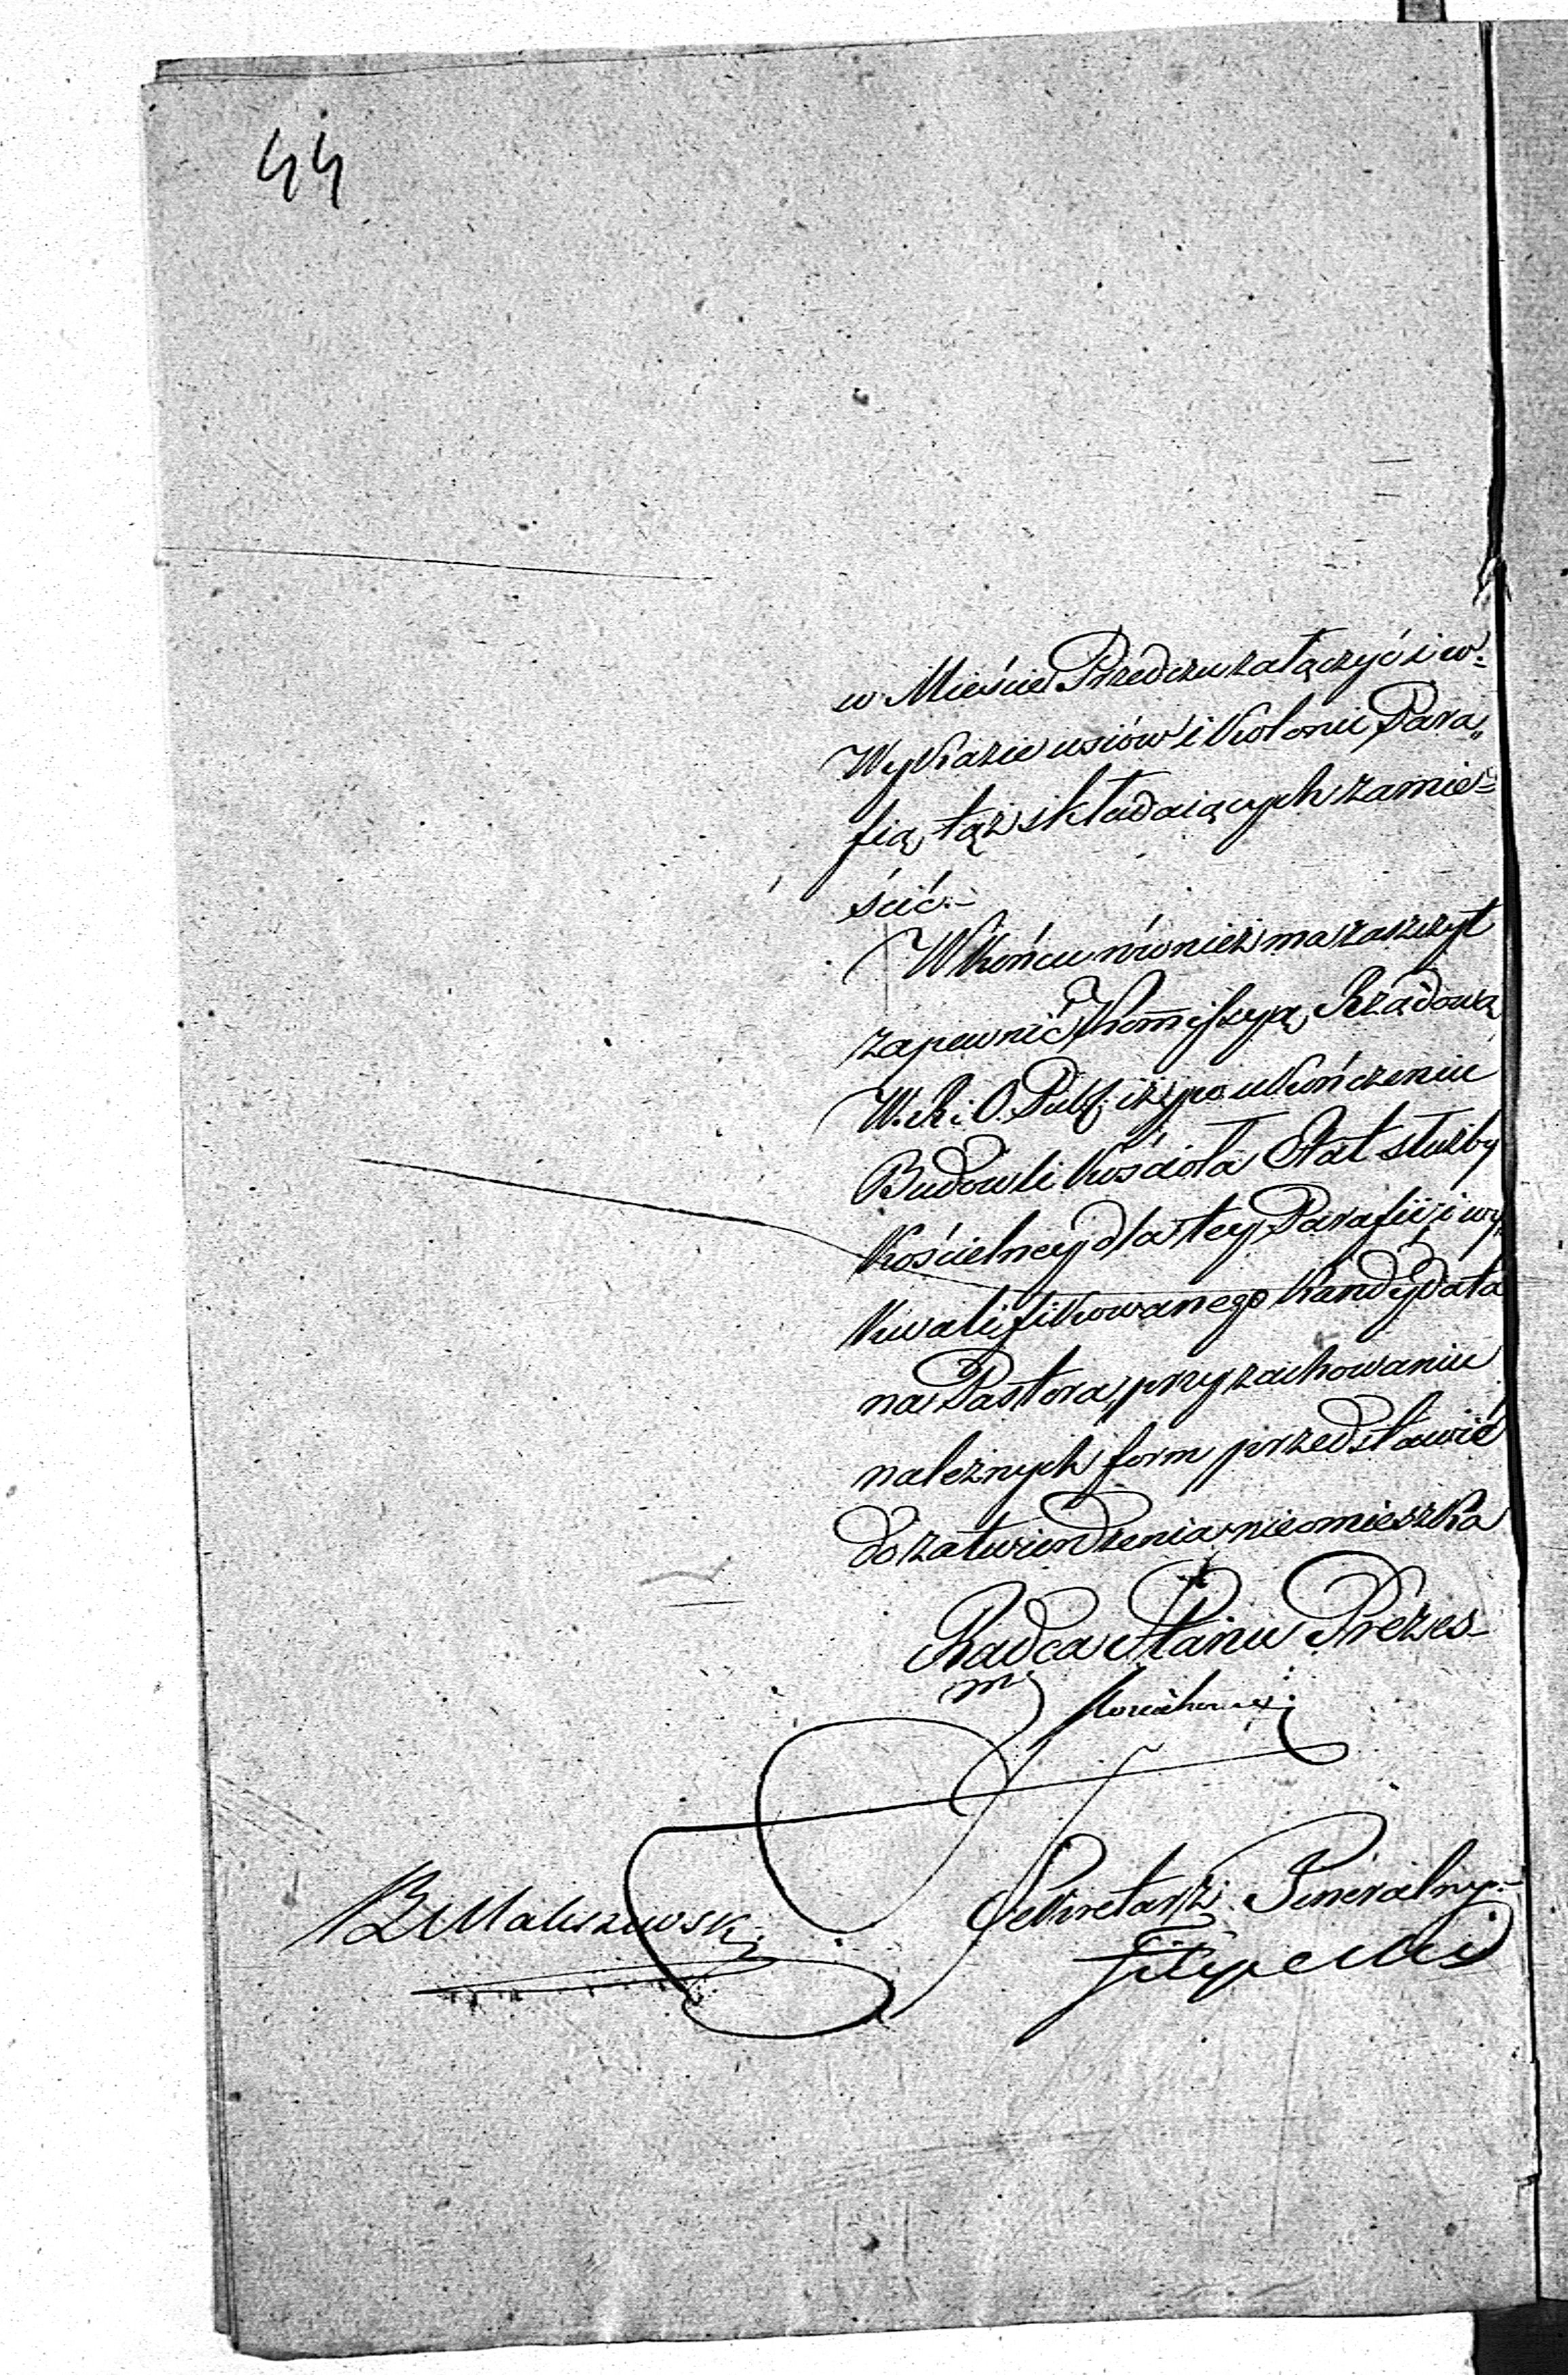 44
w Mieście Przedczu załączyć i w=
Wykazie wsiów i Kolonii Para„
fią tąż składaiących zamie=
ścić.-
W końcu również ma zaszczyt
zapewnić Kommissyą Rządową
W. R. i O. Publ. iż po ukończeniu
Budowli Kościoła Etat służby
Kościelney dla tey Parafii i wy
kwalifikowanego Kandydata
na Pastora, przy zachowaniu
należnych form przedstawić
do zatwierdzenia nieomieszka
Radca Stanu Prezes
Sekretarz Jeneralny.-
Filipecki
B Maliszewski